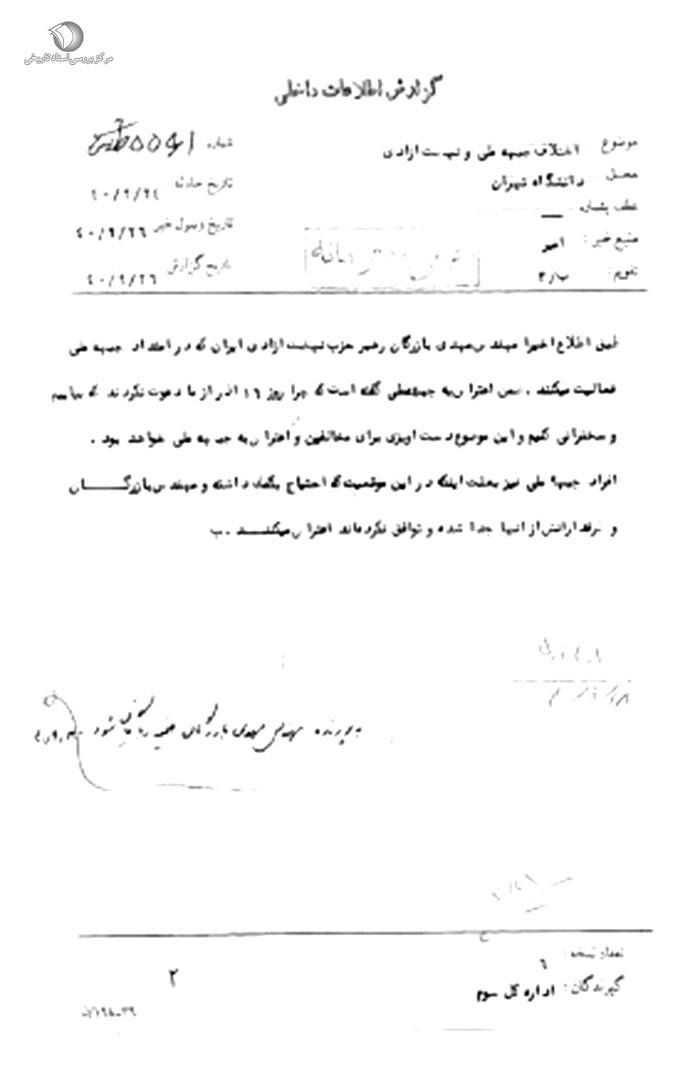 مرکز بررسی اسناد تاریخی
گزارش اطلاعات داخلی
موضوع: اختلاف جبهه ملی و نهضت ازادی
محل: دانشگاه تهران
عطف بشماره
منبع خبر: امیر
تقویم: ب/۳
شماره
تاریخ حادثه
تاریخ وصول خبر ۴۰/۹/۲۶
تاریخ گزارش ۴۰/۹/۲۶
طبق اطلاع اخیرا مهندس مهدی بازرگان رهبر حزب نهضت ازادی ایران که در امتداد جبهه ملی
فعالیت میکند . ضمن اعتراض به جبهه ملی گفته است که چرا روز ۱۶ اذر از ما دعوت نکردند که بیاییم
و سخنرانی کنیم و این موضوع دست اویزی برای مخالفین و اعتراض به جبهه ملی خواهد بود .
افراد جبهه ملی نیز بعلت اینکه در این موقعیت که احتیاج بکمک داشته و مهندس بازرگان
و طرفدارانش از انها جدا شده و توافق نکرده‌اند اعتراض میکنند . ب
به پرونده مهندس مهدی بازرگان ضمیمه شود
تعداد نسخه: ۶
گیرندگان: اداره کل سوم
۲